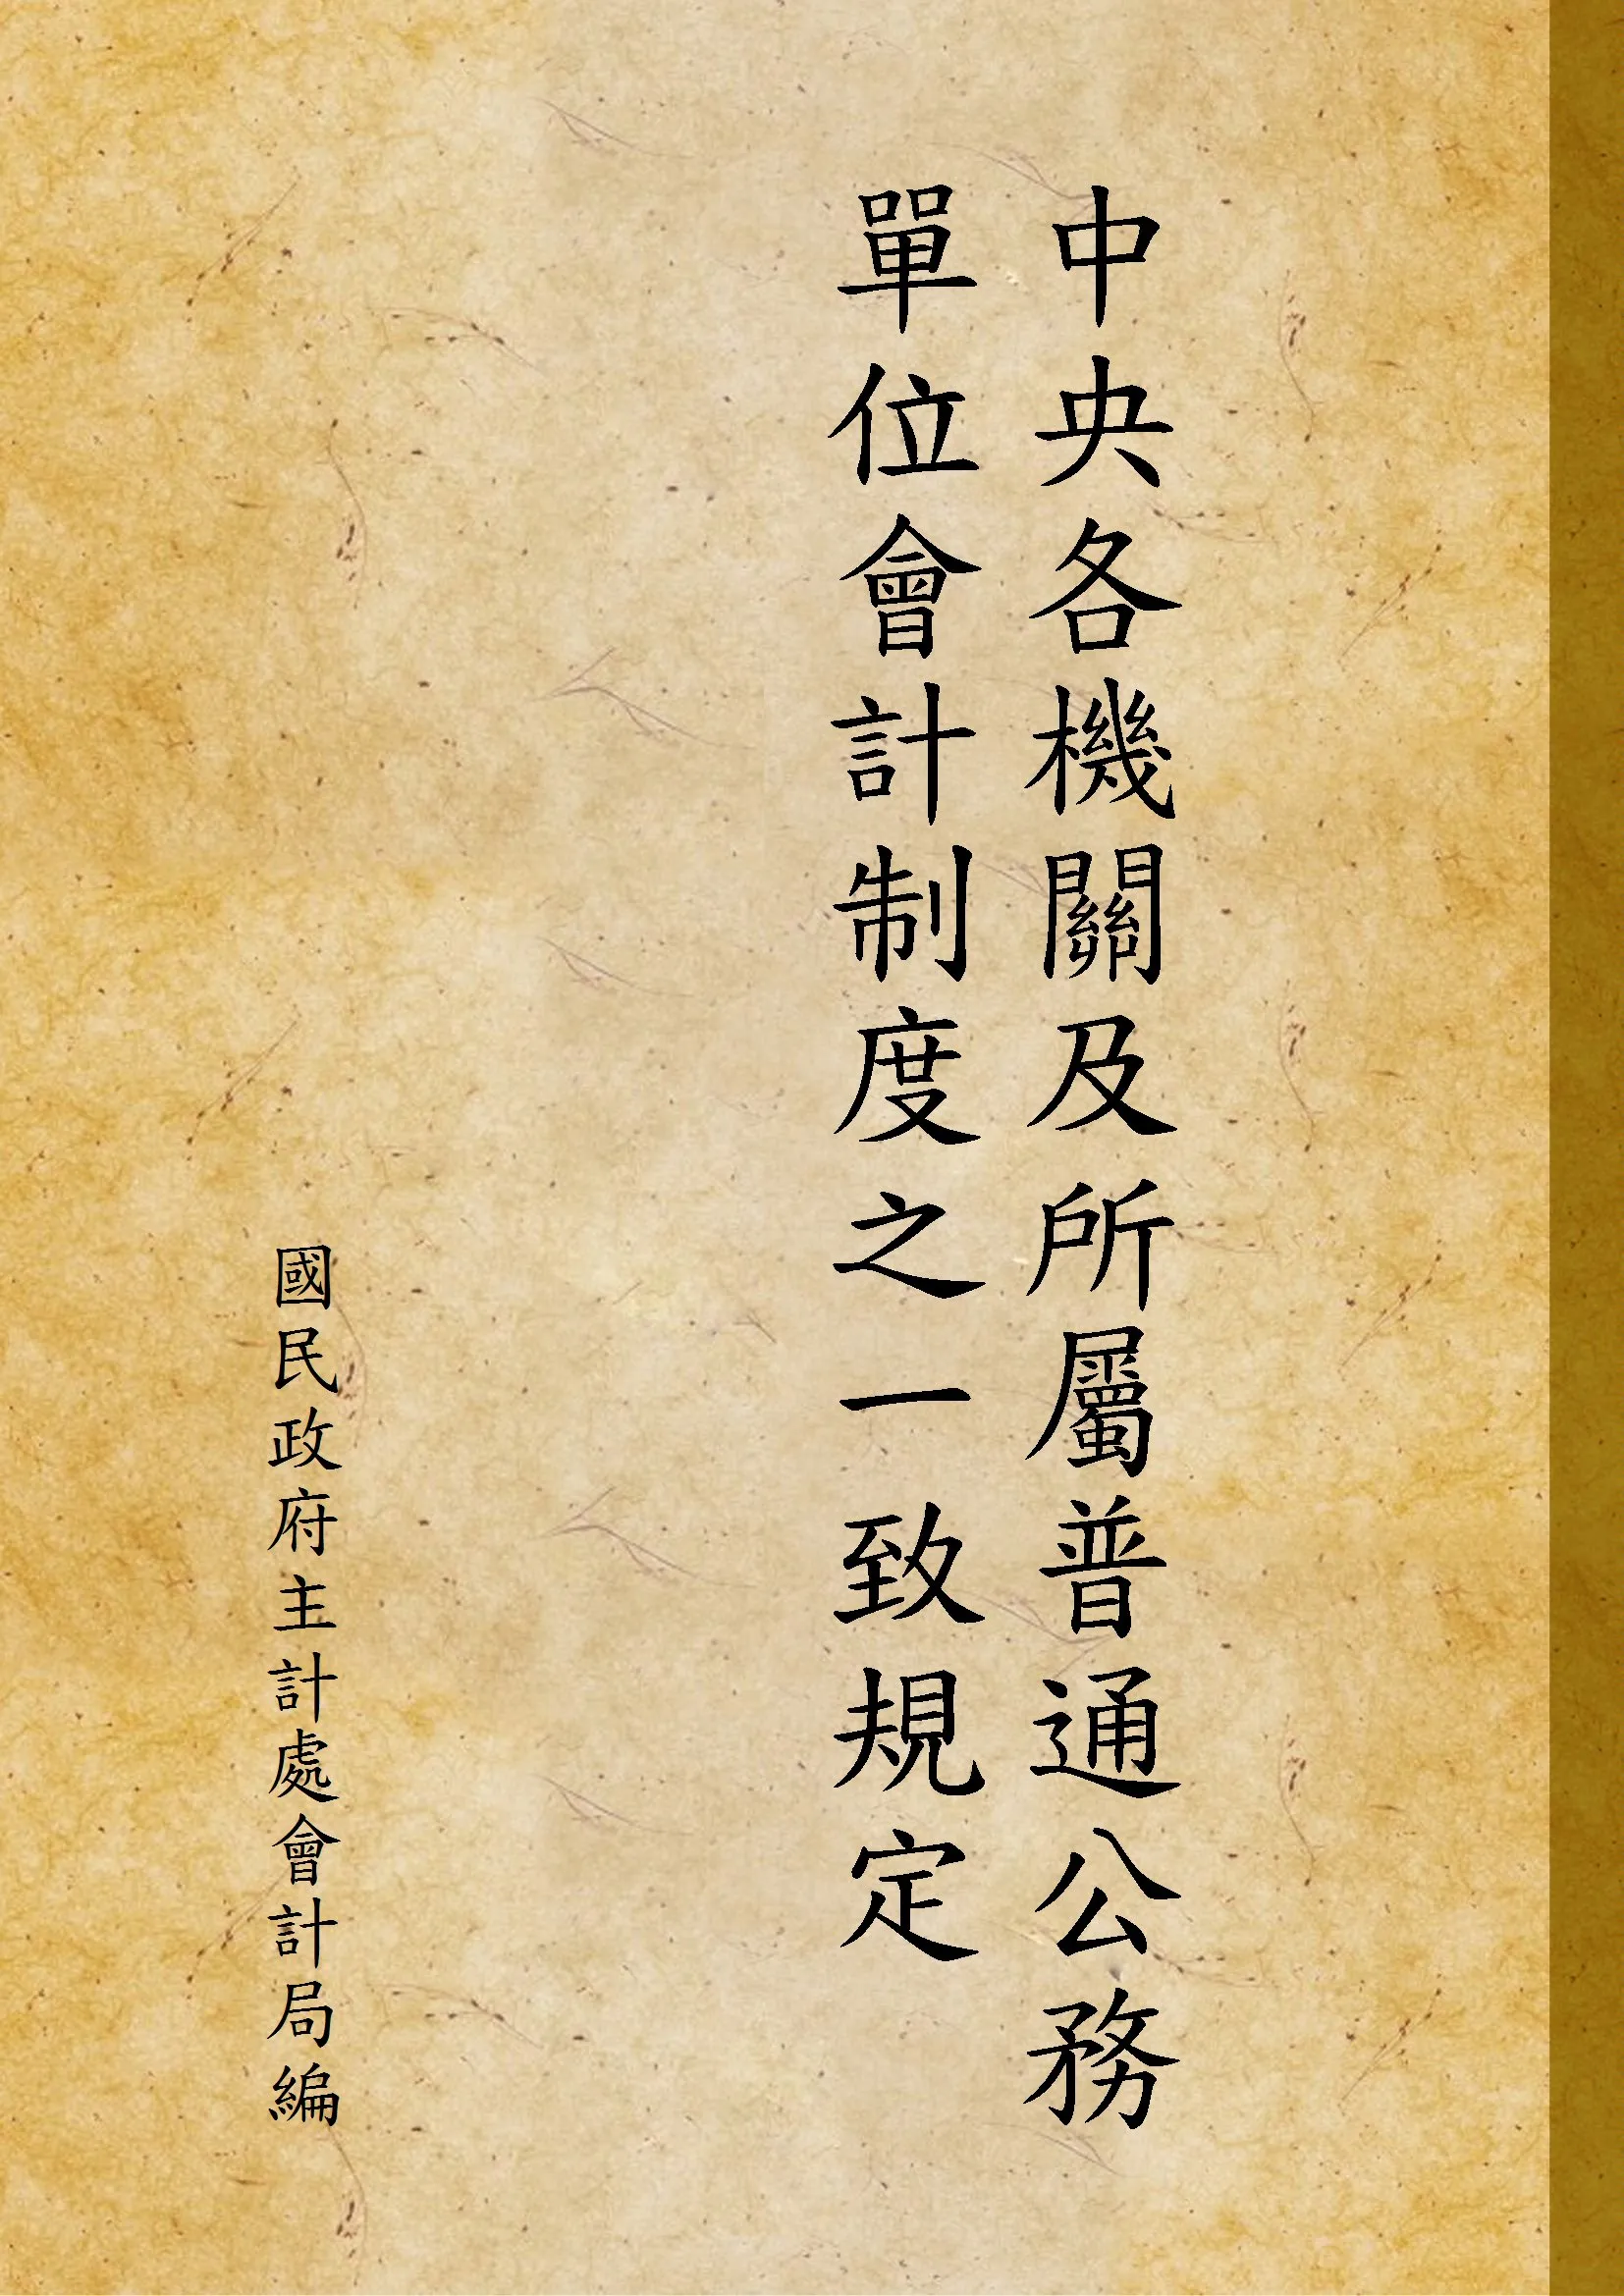 中央各機關及所屬普通公務
單位會計制度之一致規定
國民政府主計處會計局編